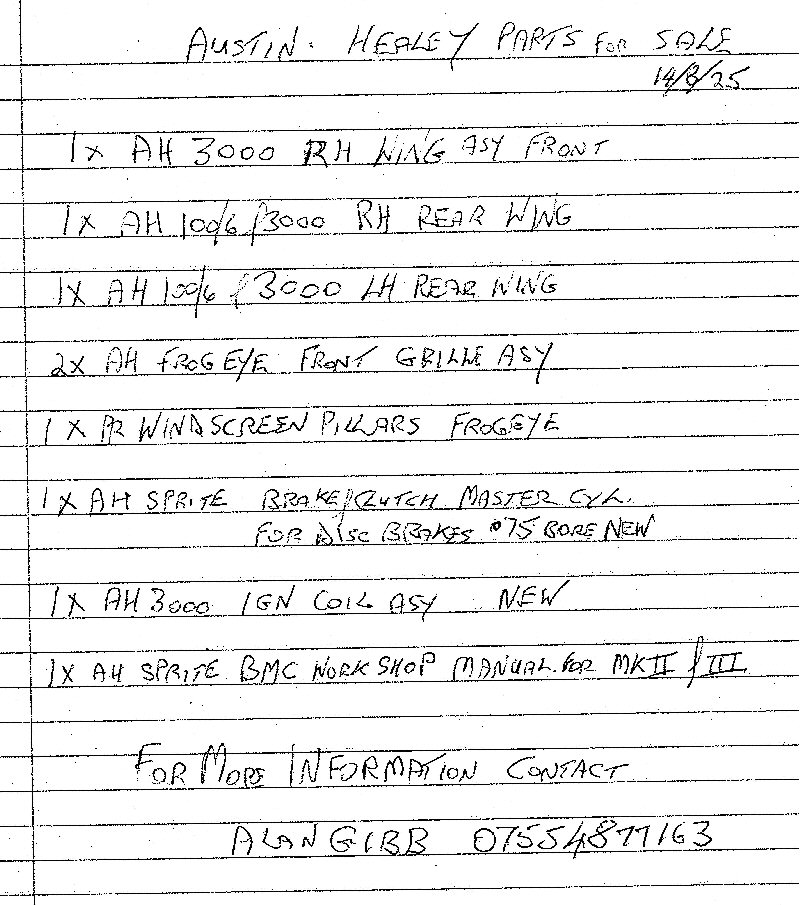 AUSTIN. HEALEY PARTS FOR SALE
14/8/25
1x AH 3000 RH WING ASY FRONT
1x AH 100/6 & 3000 RH REAR WING
1x AH 100/6 & 3000 LH REAR WING
2x AH FROGEYE FRONT GRILLE ASY
1 x PR WINDSCREEN PILLARS FROGEYE
1x AH SPRITE BRAKE/CLUTCH MASTER CYL.
FOR DISC BRAKES .75 BORE NEW
1x AH 3000 IGN COIL ASY NEW
1x AH SPRITE BMC WORKSHOP MANUAL. FOR MK II & III
FOR MORE INFORMATION CONTACT
ALAN GIBB 07554877163